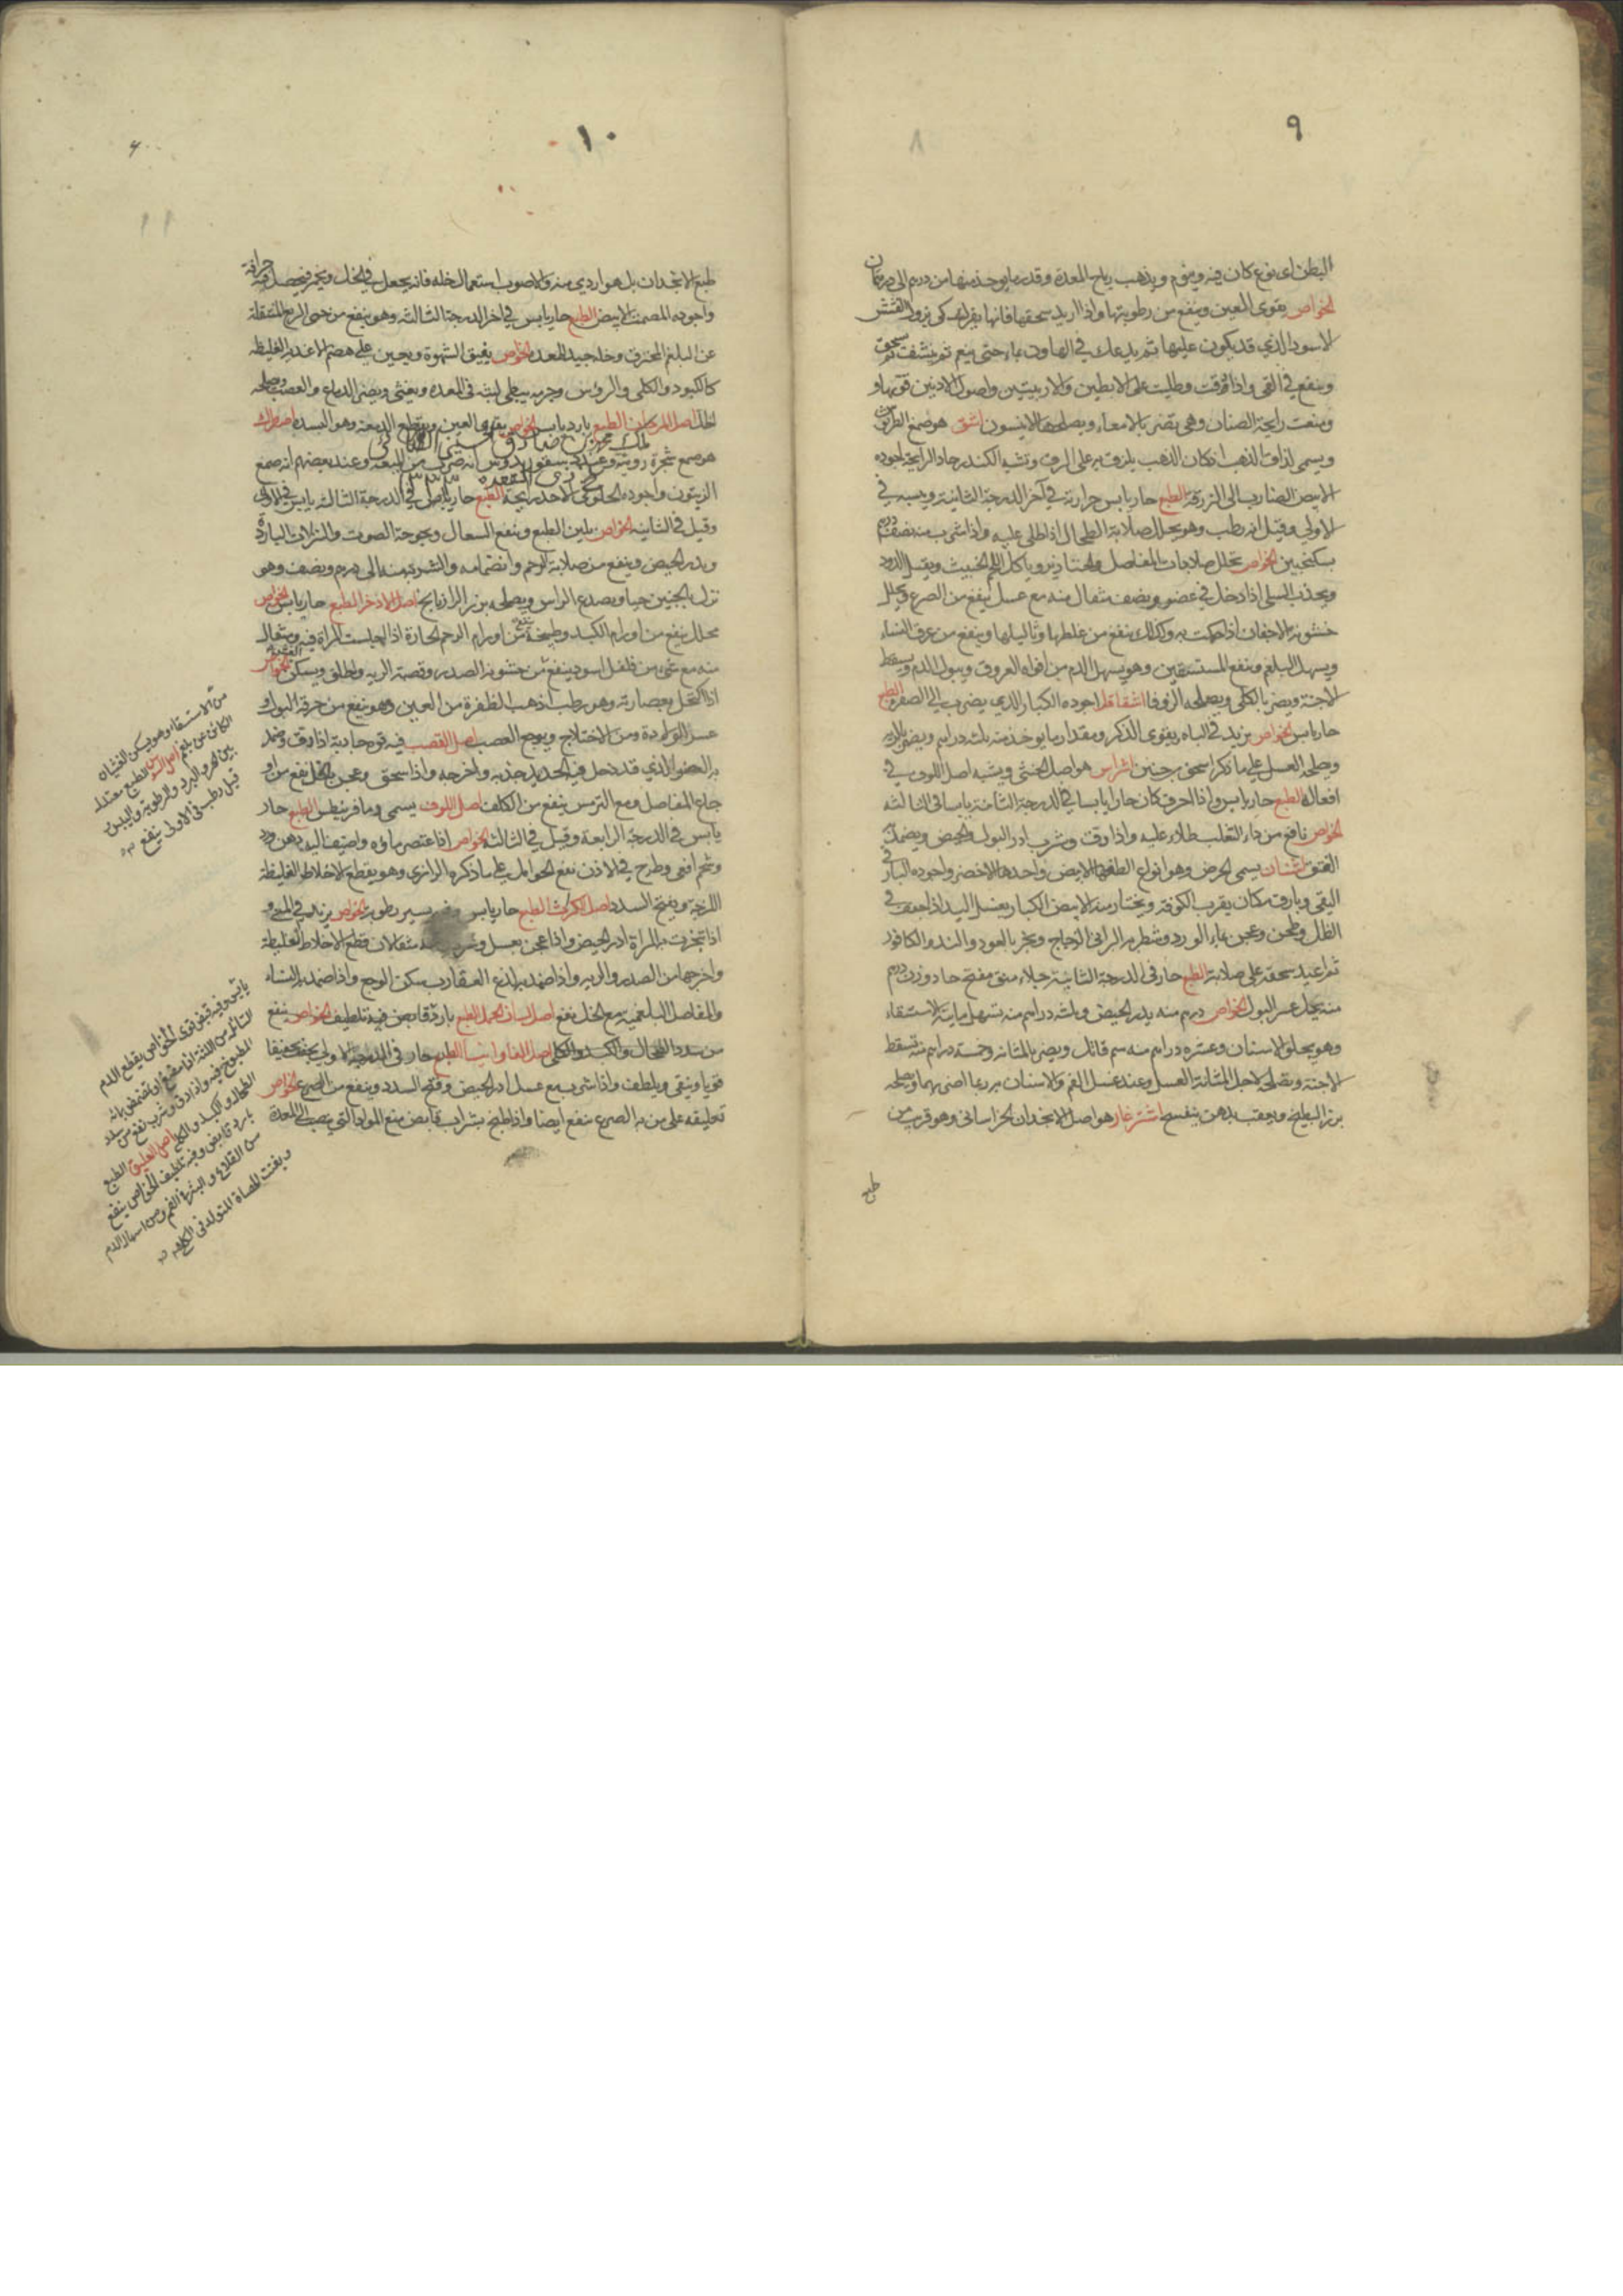 ٩
البطن اى نوع كان فيه وينوم ويذهب رياح المعدة وقدر ما يوخذ منها من درهم الى درهمان
الخواص يقوى العين وينفع من رطوبتها واذا اريد سحقها فانها يفرك كى يزول القشر
الاسود الذي قد يكون عليها ثم يدعك في الهاون بماء حتى ينعم ثم ينشف ثم سحق
وينفع في القى واذا حرقت وطليت على الابطين والاربيتين واصول الاذنين قوتها و
ومنعت رايحة الصنان وهي تضر بالامعاء ويصلحها الانيسون اشق هو صمغ الطرثوث
ويسمى لذاق الذهب اذ كان الذهب يلزق به على الرق وتشبه الكندر حاد الرايحة اجوده
الابيض الضارب الى الزرقة الطبع حار يابس حرارته في آخر الدرجة الثانية ويبسه في
الاولى وقيل انه رطب وهو يحلل صلابة الطحال اذا طلى عليه واذا شرب منه نصف درهم
بسكنجبين الخواص تحلل صلابات المفاصل والخنازير وياكل اللحم الخبيث ويقتل الدود
ويجذب السلى اذا دخل في عضو ونصف مثقال منه مع عسل ينفع من الصرع ويحلل
خشونة الاجفان اذا حكت به وكذلك ينفع من غلظها وثاليلها وينفع من عرق النساء
ويسهل البلغم وينفع المستسقين وهو يسهل الدم من افواه العروق ويبول الدم ويسقط
الاجنة ويضر بالكلى ويصلحه الزوفا اشقاقل اجوده الكبار الذي يضرب الى الصفرة الطبع
حار يابس الخواص يزيد في الباه ويقوى الذكر ومقدار ما يوخذ منه ثلثه دراهم ويضر بالرية
ويصلحه العسل على ما ذكر اسحق بن حنين اشراس هو اصل الخنثى ويشبه اصل اللوف في
افعاله الطبع حار يابس واذا احرق كان حارا يابسا في الدرجة الثانية يابسا في الثالثه
الخواص نافع من داء الثعلب طلاء عليه واذا دق وشرب ادر البول والحيض ويضمد به
الفتق اشنان يسمى الحرض وهو انواع الطفها الابيض واحدها الاخضر واجوده البارقي
النقى وبارق مكان بقرب الكوفة ويختار منه الابيض الكبار يغسل اليد اذا جفف في
الظل وطحن وعجن بماء الورد وشطر به البراني الزجاج وبخر بالعود والند والكافور
ثم اعيد سحقه على صلاية الطبع حار في الدرجة الثانية جلاء منق مفتح حاد وزن درهم
منه يحل عسر البول الخواص درهم منه يدر الحيض وثلثه دراهم منه تسهل مائية الاستسقاء
وهو يجلو الاسنان وعشره دراهم منه سم قاتل ويضر بالمثانه وخمسة دراهم منه تسقط
الاجنة ويصلح لاجل المثانة العسل وعند غسل الفم والاسنان به ربما اضر بهما ويصلحه
بزر البطيخ ويعقب بدهن بنفسج اشترغاز هو اصل الانجدان الخراساني وهو قريب من
طبع
١٠
طبع الانجدان بل هو اردي منه والاصوب استعمال خله فانه يجعل في الخل ويخمر فيحصل فيه حرافة
واجوده المصمت الابيض الطبع حار يابس في اخر الدرجة الثالثه وهو ينفع من حمى الربع المنتقلة
عن البلغم المحترق وخله جيد للمعدة الخواص يفيق الشهوة ويعين على هضم الاغذية الغليظه
كالكبود والكلى والرؤس وجرمه بطي اللبث في المعدة ويغثى ويضر الدماغ والعصب ويصلحه
الخل اصل المرجان الطبع بارد يابس الخواص يقوى العين ويقطع الدمعة وهو البسد اصطرك
هو صمغ شجرة رومية وعند ديسقوريدوس انه ضرب من الميعة وعند بعضهم انه صمغ
الزيتون واجوده الحلوقي الاحمر الطبع حار في الدرجة الثالثه يابس في الاولى
وقيل في الثانيه الخواص يلين الطبع وينفع السعال وبحوحة الصوت والنزلات الباردة
ويدر الحيض وينفع من صلابة الرحم وانضمامه والشربة منه الى درهم ونصف وهو
ينزل الجنين حيا ويصدع الراس ويصلحه بزر الرازيانج اصل الاذخر الطبع حار يابس الخواص
محلل ينفع من اورام الكبد وطبيخه ينفع من اورام الرحم الحارة اذا جلست المراة فيه ومثقال
منه مع شى من فلفل اسود ينفع من خشونة الصدر وقصبة الريه والحلق ويسكن
اذا اكتحل بعصارته وهو رطب اذهب الظفرة من العين وهو ينفع من حرقة البول و
عسر الولادة ومن الاختلاج ويوجع العصب اصل القصب فيه قوه جاذبة اذا دق وضمد
به العضو الذي قد دخل فيه الحديد جذبه واخرجه واذا سحق وعجن بالخل نفع من او
جاع المفاصل ومع الترمس ينفع من الكلف اصل اللوف يسمى وما فرينطس الطبع حار
يابس في الدرجة الرابعة وقيل في الثالثه الخواص اذا عتصر ماؤه واضيف اليه دهن ورد
وشحم افعى وطرح في الاذن نفع الحوالب على ما ذكره الرازى وهو يقطع الاخلاط الغليظة
اللزجة ويفتح السدد اصل الكراث الطبع حار يابس وفيه يسير رطوبة الخواص يزيد في المنى و
اذا تبخرت به المراة ادر الحيض واذا عجن بعسل وشرب منه مثقالان قطع الاخلاط الغليظة
واخرجها من الصدر والريه واذا ضمد به لذع العقارب سكن الوجع واذا ضمد به النساء
والمفاصل البلغمية مع الخل نفع اصل لسان الحمل الطبع بارد قابض فيه تلطيف الخواص ينفع
من سدد الطحال والكبد والكلى اصل الفاوانيا الطبع حار في الدرجة الاولى يجفف تجفيفا
قويا وينقى ويلطف واذا شرب مع عسل ادر الحيض وفتح السدد وينفع من الصرع الخواص
تعليقه على من به الصرع ينفع ايضا واذا طبخ بشراب قابض منع المواد التي تنصب الى المعدة
من الاستسقاء وهو يسكن الغثيان
الكائن عن بلغم اصل السوس الطبع معتدل
بين الحر والبرد والرطوبة واليبس
قيل رطب في الاولى ينفع
يابس وفيه قبض قوى الخواص يقطع الدم
السائل من اللثة اذا مضغ او تمضمض بمائه
المطبوخ فيه واذا دق وشرب نفع من سدد
الطحال والكبد والكلى اصل العليق الطبع
بارد قابض وفيه تلطيف الخواص ينفع
من القلاع والبثرة الفم ومن اسهال الدم
ويفتت الحصاة المتولد في الكلى